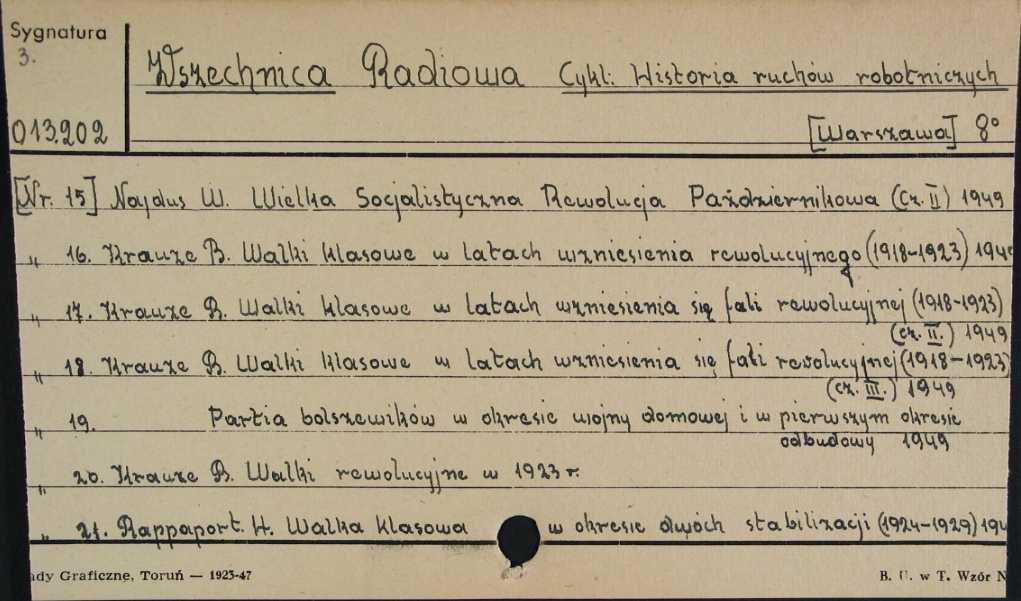 Sygnatura
3.
013.202
Wszechnica Radiowa Cykl: Historia ruchów robotniczych
[Warszawa] 8°
[Nr. 15] Najdus W. Wielka Socjalistyczna Rewolucja Październikowa (Cz. II) 1949
„ 16. Krauze B. Walki klasowe w latach wzniesienia rewolucyjnego (1918-1923) 194
„ 17. Krauze B. Walki klasowe w latach wzniesienia się fali rewolucyjnej (1918-1923)
(cz. II.) 1949
„ 18. Krauze B. Walki klasowe w latach wzniesienia się fali rewolucyjnej (1918-1923)
(cz. III.) 1949
„ 19. Partia bolszewików w okresie wojny domowej i w pierwszym okresie
odbudowy 1949
„ 20. Krauze B. Walki rewolucyjne w 1923 r.
„ 21. Rappaport. H. Walka klasowa w okresie dwóch stabilizacji (1924-1929) 194
ady Graficzne, Toruń — 1923-47
B. U. w T. Wzór N